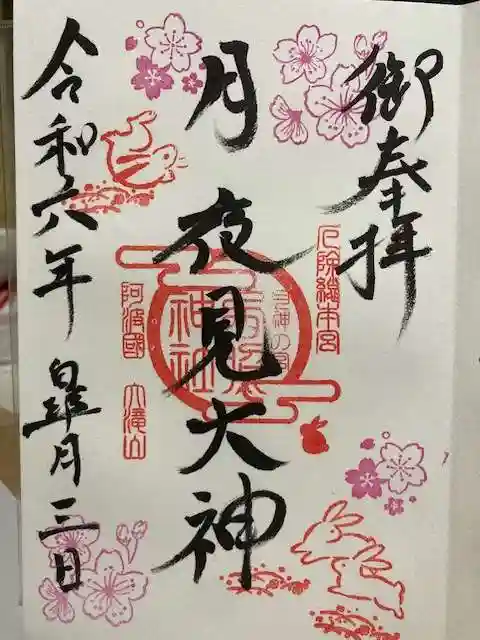 御奉拝
厄除総本宮
月夜見大神
神社
阿波國 大滝山
令和六年 皐月三日